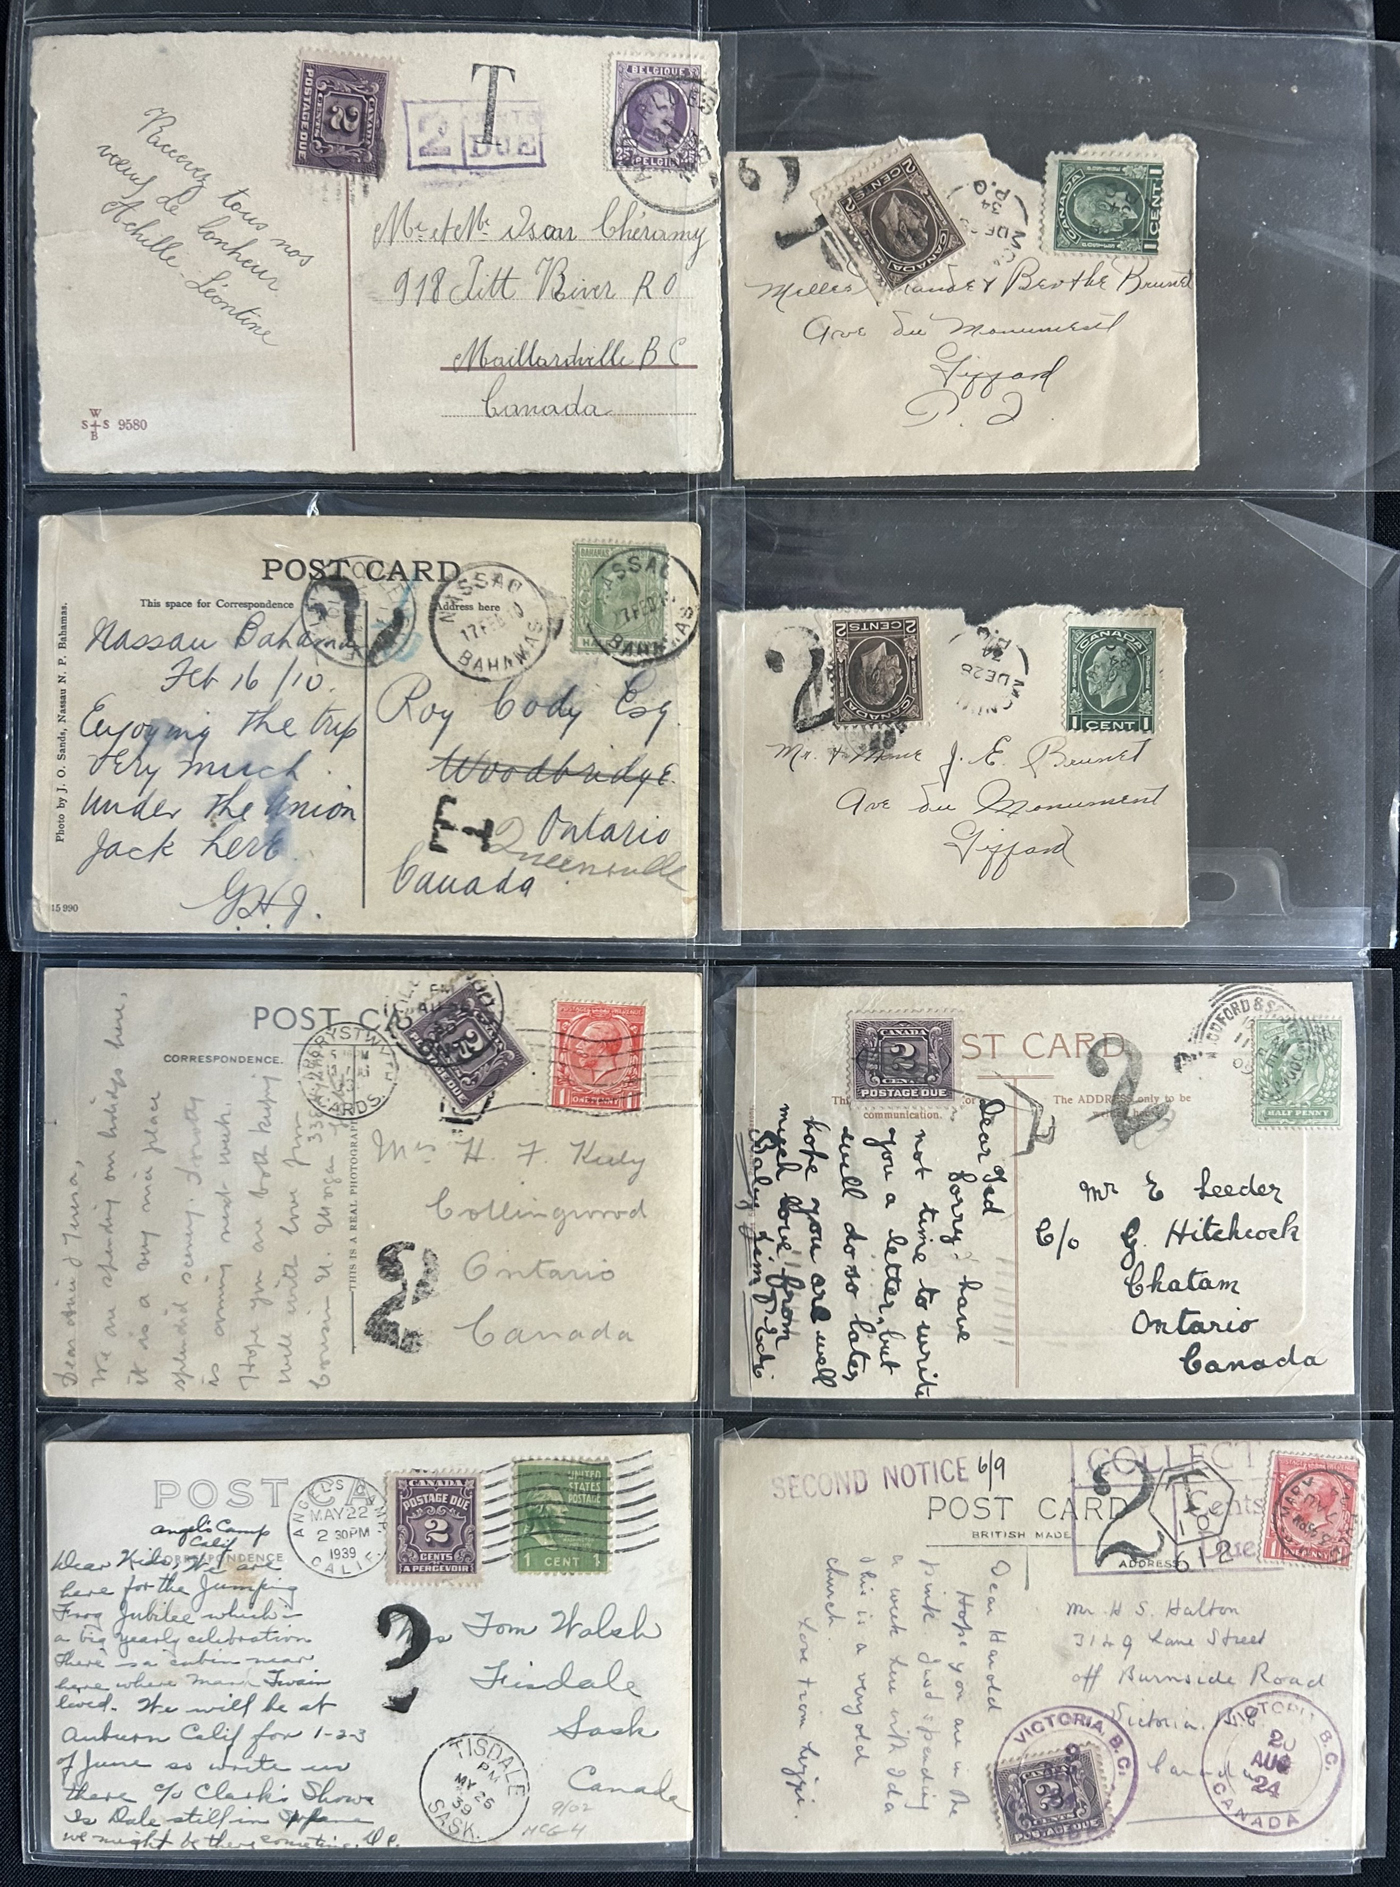 Recevez tous nos
vœux de bonheur
Achille - Léontine
CANADA
2
CENTS
POSTAGE DUE
T
2 CENTS
DUE
BELGIQUE
BELGIE
Mr et Me
918 Pitt River RD
Maillardville BC
Canada
W
S S 9580
B
2 CENTS 2
CANADA
DE
34
P.Q
CANADA
1 CENT 1
Berthe Brunet
Ave du Monument
Giffard
P. Q.
POST CARD
This space for Correspondence
Address here
Photo by J. O. Sands, Nassau N. P. Bahamas.
15990
NASSAU
17 FEB
BAHAMAS
BAHAMAS
NASSAU
BAHAMAS
2
Nassau Bahamas
Feb 16/10.
Enjoying the trip
very much.
Under the Union
Jack here.
G.H.J.
Roy Cody Esq.
Woodbridge
Ontario
Queensville
Canada
2
2 CENTS 2
CANADA
DE 28
34
P.Q
CANADA
1 CENT 1
Mr. & Mme J. E. Brunet
Ave du Monument
Giffard
POST CA
CORRESPONDENCE.
THIS IS A REAL PHOTOGRAPH
ABERYSTWYTH
CARDS.
2
POSTAGE DUE
1 ONE PENNY 1
We are spending our holidays here,
it is a very nice place
splendid scenery.
is coming next week.
Hope you are both keeping
well with love from
Mrs H. F.
Collingwood
Ontario
Canada
2
CANADA
2
CENTS
POSTAGE DUE
ST CARD
communication.
The ADDRESS only to be
2
HALF PENNY
Dear Ted
Sorry I have
not time to write
you a letter, but
will do so later
hope you are well
much love from
Mr E Leeder
C/o G. Hitchcock
Chatam
Ontario
Canada
POST CA
CORRESPONDENCE
ANGEL'S CAMP
MAY 22
2 30 PM
1939
CALIF.
CANADA
POSTAGE DUE
2
CENTS
A PERCEVOIR
UNITED
STATES
POSTAGE
1 CENT 1
Angel's Camp
Calif
Dear Kids, We are
here for the Jumping
Frog Jubilee which is
a big yearly celebration
There's a cabin near
here where Mark Twain
lived. We will be at
Auburn Calif for 1-2-3
of June so write us
there c/o Clark's Shows
Is Dale still in
we might be there sometime.
2
Mrs Tom Walsh
Tisdale
Sask
Canada
TISDALE
PM
MY 26
39
SASK.
9/02
MCG-4
SECOND NOTICE 6/9
COLLECT
2 Cents
Due
T
10
612
POST CARD
BRITISH MADE
ADDRESS
ONE PENNY 1
Dear Harold
Hope you are in the
pink just spending
a week here with Ida
this is a very old
church
Love from Lizzie.
Mr H S. Halton
3149 Lane Street
off Burnside Road
Victoria. B.C.
Canada
VICTORIA, B.C.
2
CENTS
POSTAGE DUE
VICTORIA, B.C.
20
AUG
24
CANADA